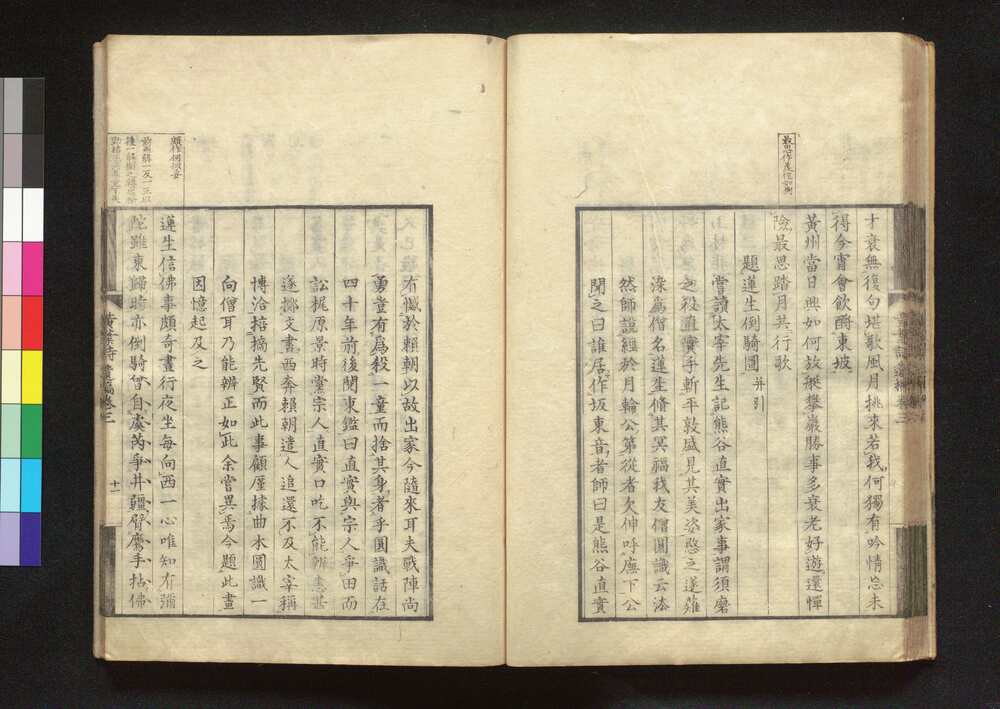 才衰無復句堪歎風月挑來若我何獨有吟情忘未
得今宵會飲酹東坡
黃州當日興如何放艇攀巖勝事多衰老好遊還憚
險最思踏月共行歌
題蓮生倒騎圖 并引
嘗讀太宰先生記熊谷直實出家事謂須磨
之役直實手斬平敦盛見其美姿愍之遂薙
染爲僧名蓮生脩其冥福我友僧圓識云法
然師說經於月輪公第從者欠伸呼廡下公
聞之曰誰居作坂東音者師曰是熊谷直實
有憾於賴朝以故出家今隨來耳夫戰陣尚
勇壹有爲殺一童而捨其身者乎圓識話在
四十年前後閱東鑑曰直實與宗人爭田而
訟梶原景時黨宗人直實口吃不能辨恚甚
遂擲文書西奔賴朝遣人追還不及太宰稱
博洽掊擿先賢而此事顧屢據曲本圓識一
向僧耳乃能辨正如此余嘗異焉今題此畫
因憶起及之
蓮生信佛事頗奇晝行夜坐每向西一心唯知有彌
陀雖東歸時亦倒騎曾自虞芮爭井疆臂鷹手拈佛
黃葉詩 遺稿卷三
十一